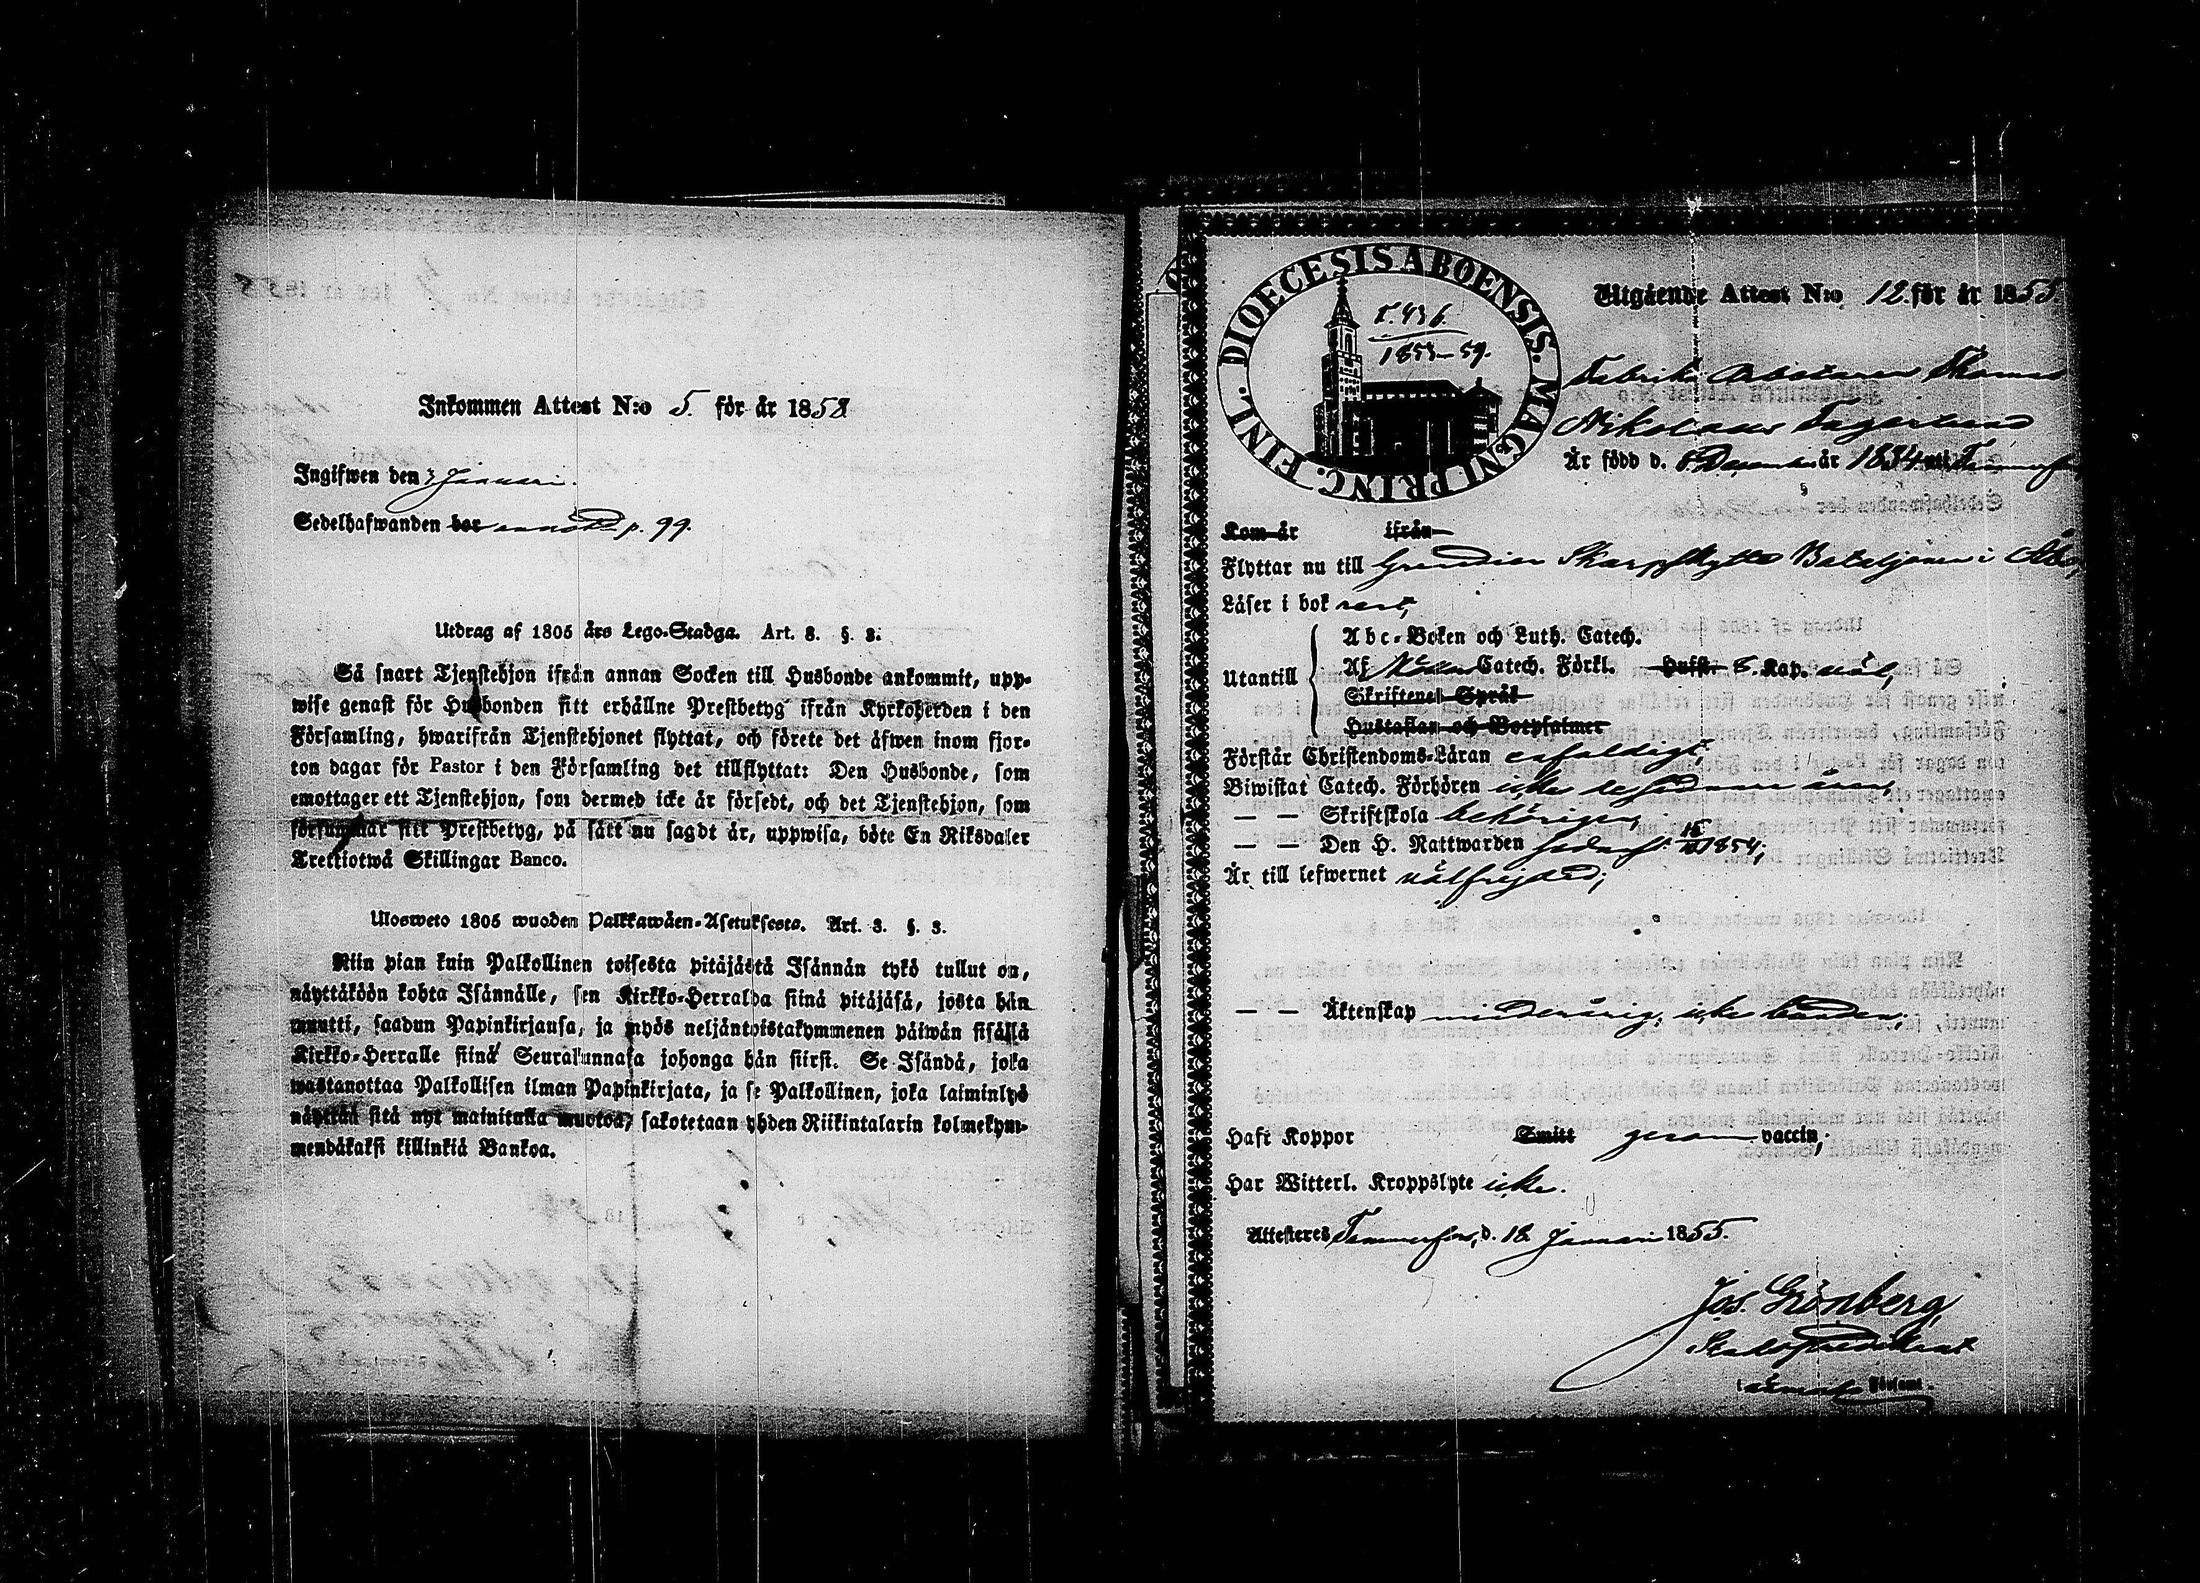 Inkommen Attest N:o 5. för år 1858
Ingifwen den 3 Januari.
Sedelhafwanden bor p. 99.
Utdrag af 1805 års Lego-Stadga. Art. 8. §. 3.
Så snart Tjenstehjon ifrån annan Socken till Husbonde ankommit, upp-
wise genast för Husbonden sitt erhållne Prestbetyg ifrån Kyrkoherden i den
Församling, hwarifrån Tjenstehjonet flyttat, och förete det äfwen inom fjor-
ton dagar för Pastor i den Församling det tillflyttat: Den Husbonde, som
emottager ett Tjenstehjon, som dermed icke är försedt, och det Tjenstehjon, som
försummar sitt Prestbetyg, på sätt nu sagdt är, uppwisa, böte En Riksdaler
Trettiotwå Skillingar Banco.
Ulosweto 1805 wuoden Palkkawäen-Asetuksesta. Art. 3. §. 3.
Niin pian kuin Palkollinen toisesta pitäjästä Isännän tykö tullut on,
näyttäköön kohta Isännälle, sen Kirkko-Herralda siinä pitäjäsä, josta hän
muutti, saadun Papinkirjansa, ja myös neljäntoistakymmenen päiwän sisällä
Kirkko-Herralle siinä Seurakunnasa johonga hän siirsi. Se Isändä, joka
wastanottaa Palkollisen ilman Papinkirjata, ja se Palkollinen, joka laiminlyö
näyttää sitä nyt mainitulla muotoa, sakotetaan yhden Riikintalarin kolmekym-
mendäkaksi killinkiä Bankoa.
DIOECESIS ABOENSIS. MAGNI PRINC. FINL.
T. 436
1853-59.
Utgående Attest N:o 12. för år 1855
Fabriks Arbetaren Thomas
Nikolaus Fagerlund
Är född d. 6 December år 1834 uti Tammerfors
Kom år ifrån
Flyttar nu till Grenadier Skarpskytte Bataljonen i Åbo,
Läser i bok rent,
Utantill
Abc-Boken och Luth. Catech.
Af Catech. Förkl. Hufst. 8. Kap. väl,
Skriftenes Språk
Hustaflan och Botpsalmer
Förstår Christendoms-Läran enfaldigt,
Biwistat Catech. Förhören icke de sednare åren,
— — Skriftskola behörigen,
— — Den H. Nattwarden sednast 1854;
Är till lefwernet välfrejdad;
— — Äktenskap minderårig, icke bunden;
Haft Koppor Smitt genom vaccin,
Har Witterl. Kroppslyte icke.
Attesteres Tammerfors, d. 18 Januari 1855.
Jos. Grönberg,
Stadspredikant